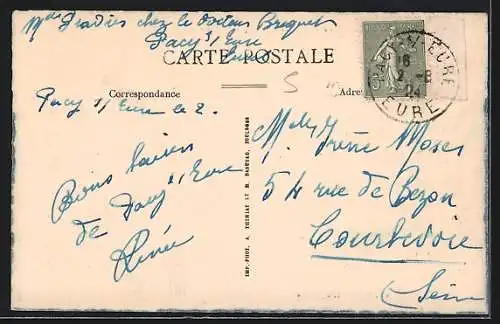 Mme Pradiés chez le docteur Briquet
Pacy s/ Eure
Eure
CARTE POSTALE
Correspondance
Adre
PACY-S-EURE
16
2 -8
24
EURE
5
Pacy s/ Eure le 2.
Bons baisers
de Pacy s/ Eure
Renée
Melle Irène Moses
54 rue de Bezon
Courbevoie
Seine
IMP.-PHOT. A. THIRIAT ET B. BASUYAU, TOULOUSE